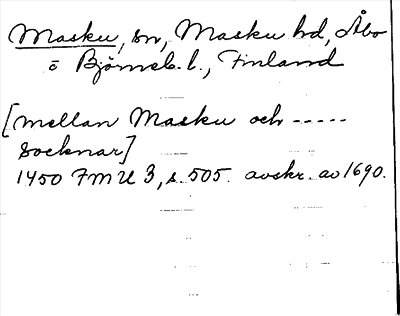 Masku, sn, Masku hd, Åbo
o Björneb. l., Finland
[mellan Masku och -----
socknar]
1450 FMU 3, s. 505. avskr. av 1690.